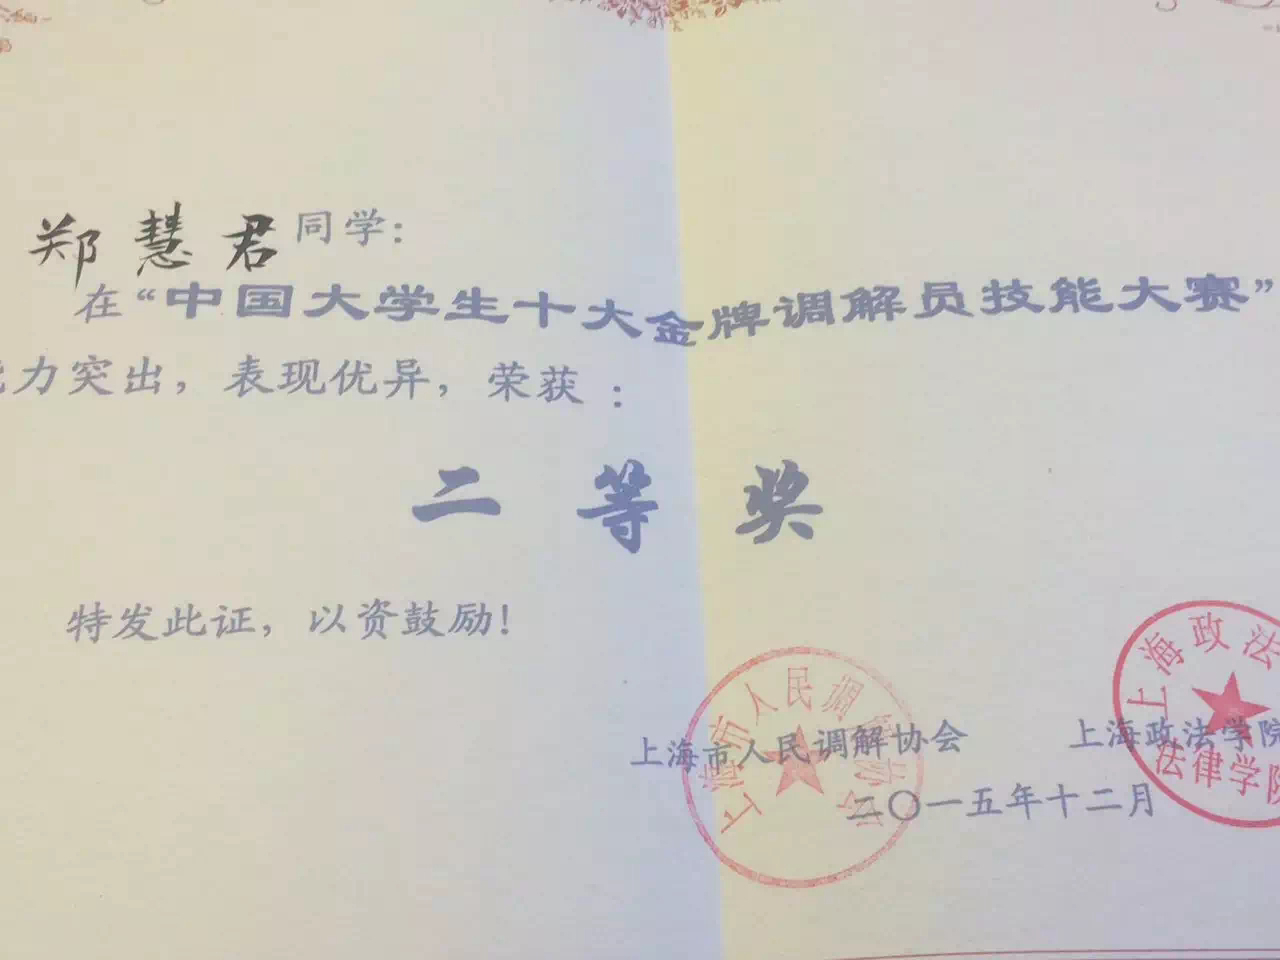 郑慧君同学：
在“中国大学生十大金牌调解员技能大赛”
力突出，表现优异，荣获：
二等奖
特发此证，以资鼓励！
上海市人民调解协会 上海政法学院
二〇一五年十二月
上海市人民调解协会
上海政法
法律学院